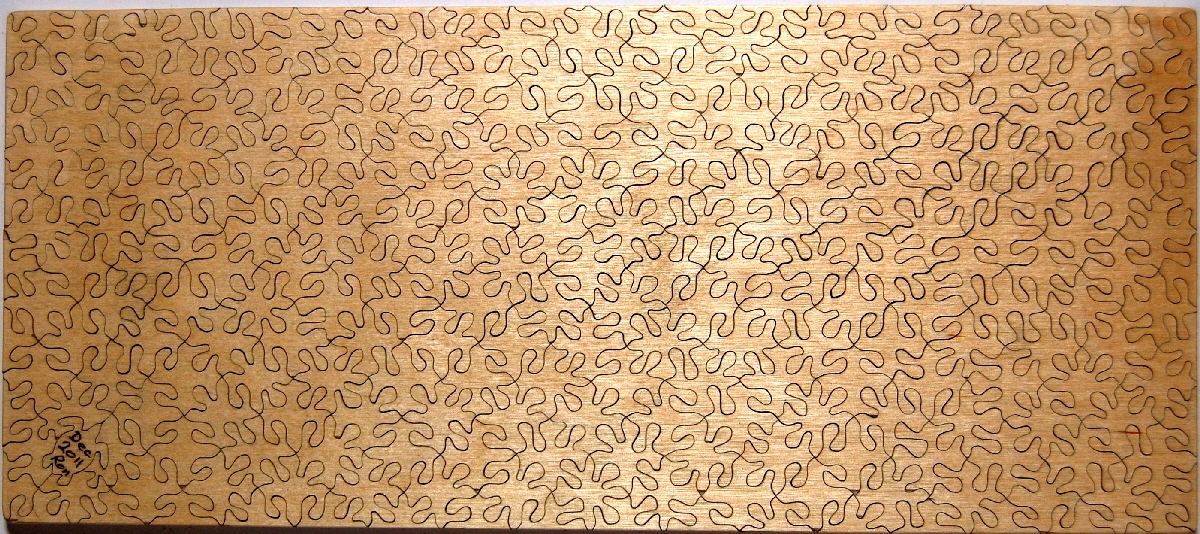 Dec
2011
Ron